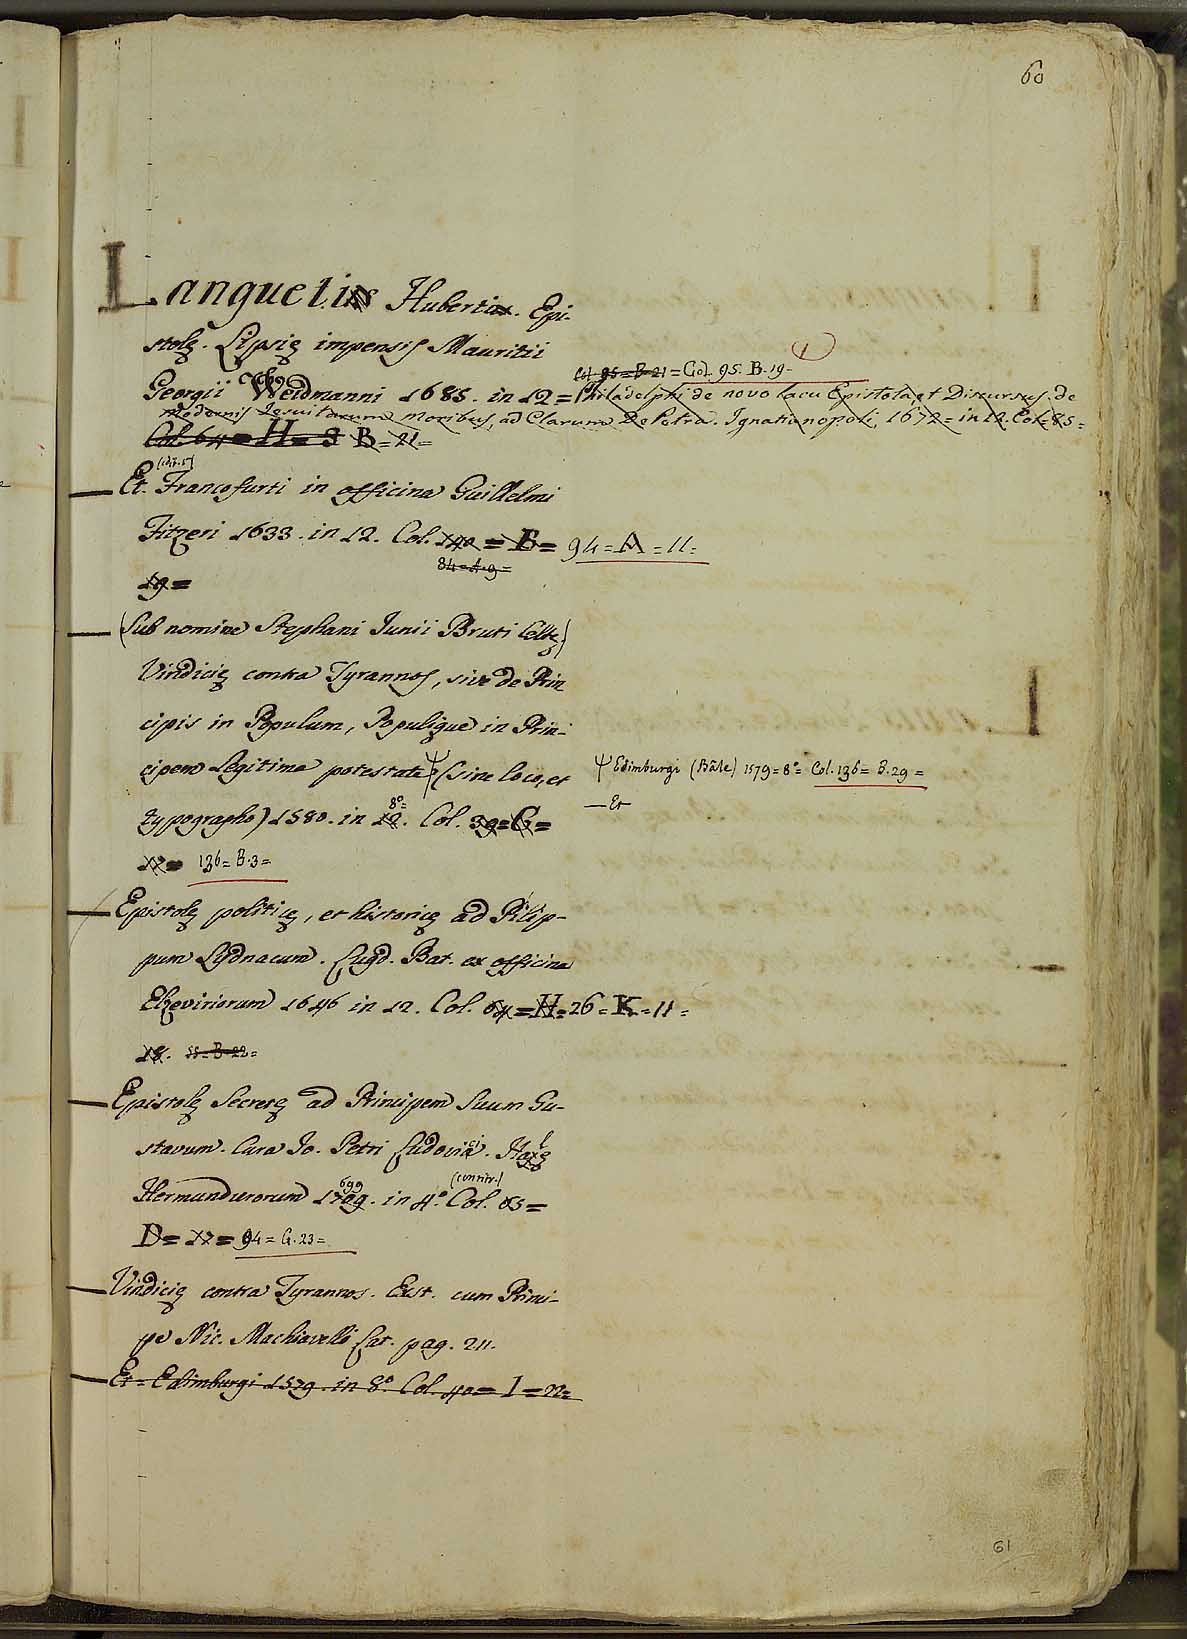 60
Languetis Huberti. Epi-
stolę. Lipsię impensis Mauritii
Col. 95 = B = 21 = Col. 95. B. 19 -
Georgii Weidmanni 1685. in 12 = Philadelphi de novo lacu Epistola, et Discursus de
modernis Jesuitarum moribus, ad Clarum De Petra. Ignatianopoli, 1672 = in 12. Col. 85 =
Col. 64 = H = 3 B = 21 =
Et. Francofurti in officina Guillelmi
Fitzeri 1633. in 12. Col. 140 = B = 94 = A = 11 =
84 = A. 9 =
19 =
(Sub nomine Stephani Junii Bruti Celtę)
Vindicię contra Tyrannos, sive de Prin
cipis in Populum, Populique in Prin-
cipem Legitima potestate Ψ (sine loco, et
Ψ Edimburgi (Bâle) 1579 = 8º = Col. 136 = B. 29 =
— Et
8º =
typographo) 1580. in 12. Col. 39 = G =
136 = B. 3 =
Epistolę politicę, et historicę ad Philip-
pum Sydnacum. Lugd. Bat. ex officina
Elzeviriorum 1646 in 12. Col. 64 = H = 26 = K = 11 =
18. 55 = B = 22 =
Epistolę Secretę ad Principem Suum Gu-
stavum. Cura Jo. Petri Ludovici.
699 (contin.)
Hermundurorum 1709. in 4º. Col. 85 =
D = 94 = G. 23 =
Vindicię contra Tyrannos. Exst. cum Princi-
pe Nic. Machiavelli Lat. pag. 211.
Et = Edimburgi 1579. in 8º. Col. 40 = I = 22 =
61